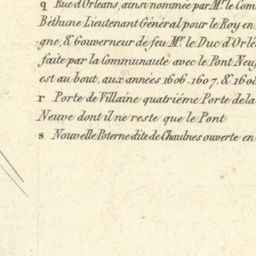 q Rue d'Orleans, ainsi nommée par Mr. le Com
Béthune Lieutenant Général pour le Roy en
gne, & Gouverneur de feu Mr. le Duc d'Orlé
faite par la Communauté avec le Pont Neuf
est au bout, aux années 1606. 1607. & 1608
r Porte de Villaine quatriéme Porte de la
Neuve dont il ne reste que le Pont
s Nouvelle Poterne dite de Chaulnes ouverte en